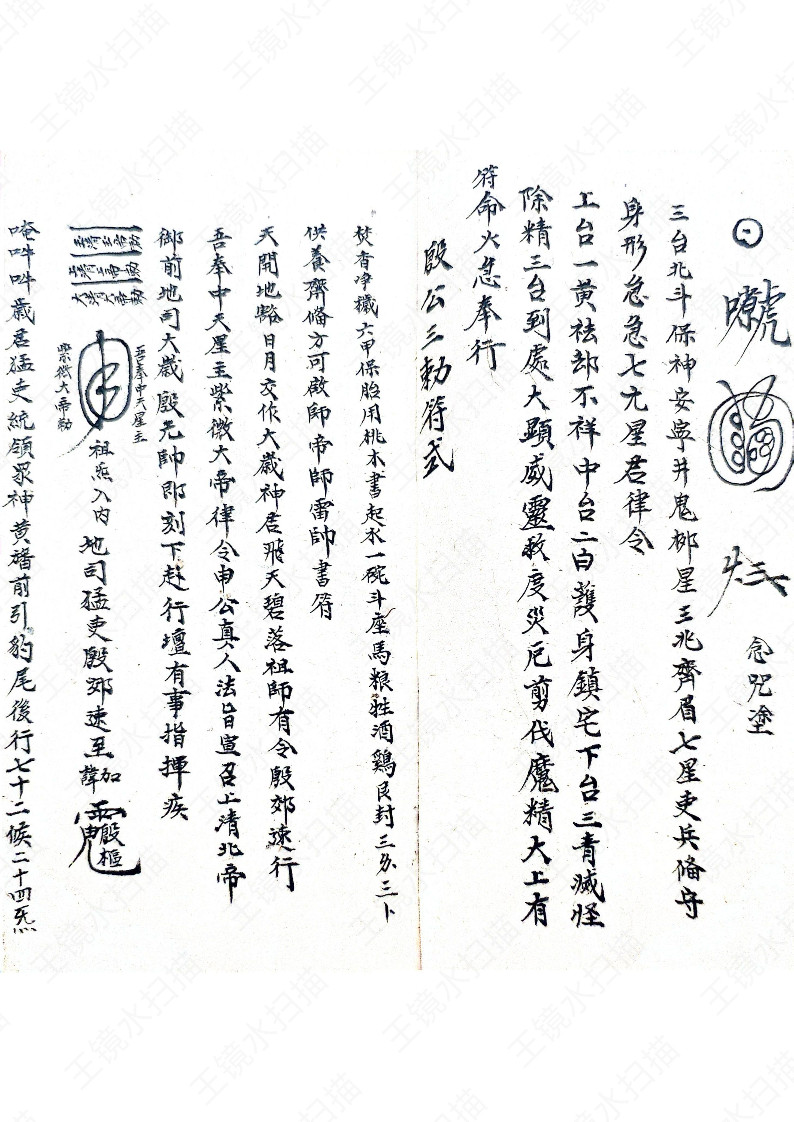 念咒塗
三台北斗保神安寧井鬼柳星三兆齊眉七星吏兵俻守
身形急急七元星君律令
上台一黄祛却不祥中台二白護身鎮宅下台三青滅怪
除精三台到處大顕威靈救度災厄剪伐魔精大上有
符命火急奉行
殷公三勅符式
焚香净穢六甲保胎用桃木書起水一碗斗座馬粮牲酒鷄艮封三分三卜
供養齊俻方可啟師帝師雷帥書符
天開地豁日月交作大歲神君飛天碧落祖師有令殷郊速行
吾奉中天星主紫微大帝律令申公真人法旨宣召上清北帝
御前地司大歲殷元帥即刻下赴行壇有事指揮疾
吾奉中天星主
紫微大帝勅
祖炁入内地司猛吏殷郊速至加諱
唵吽吽歲君猛吏統領眾神黄旛前引豹尾後行七十二候二十四炁
王镜水扫描